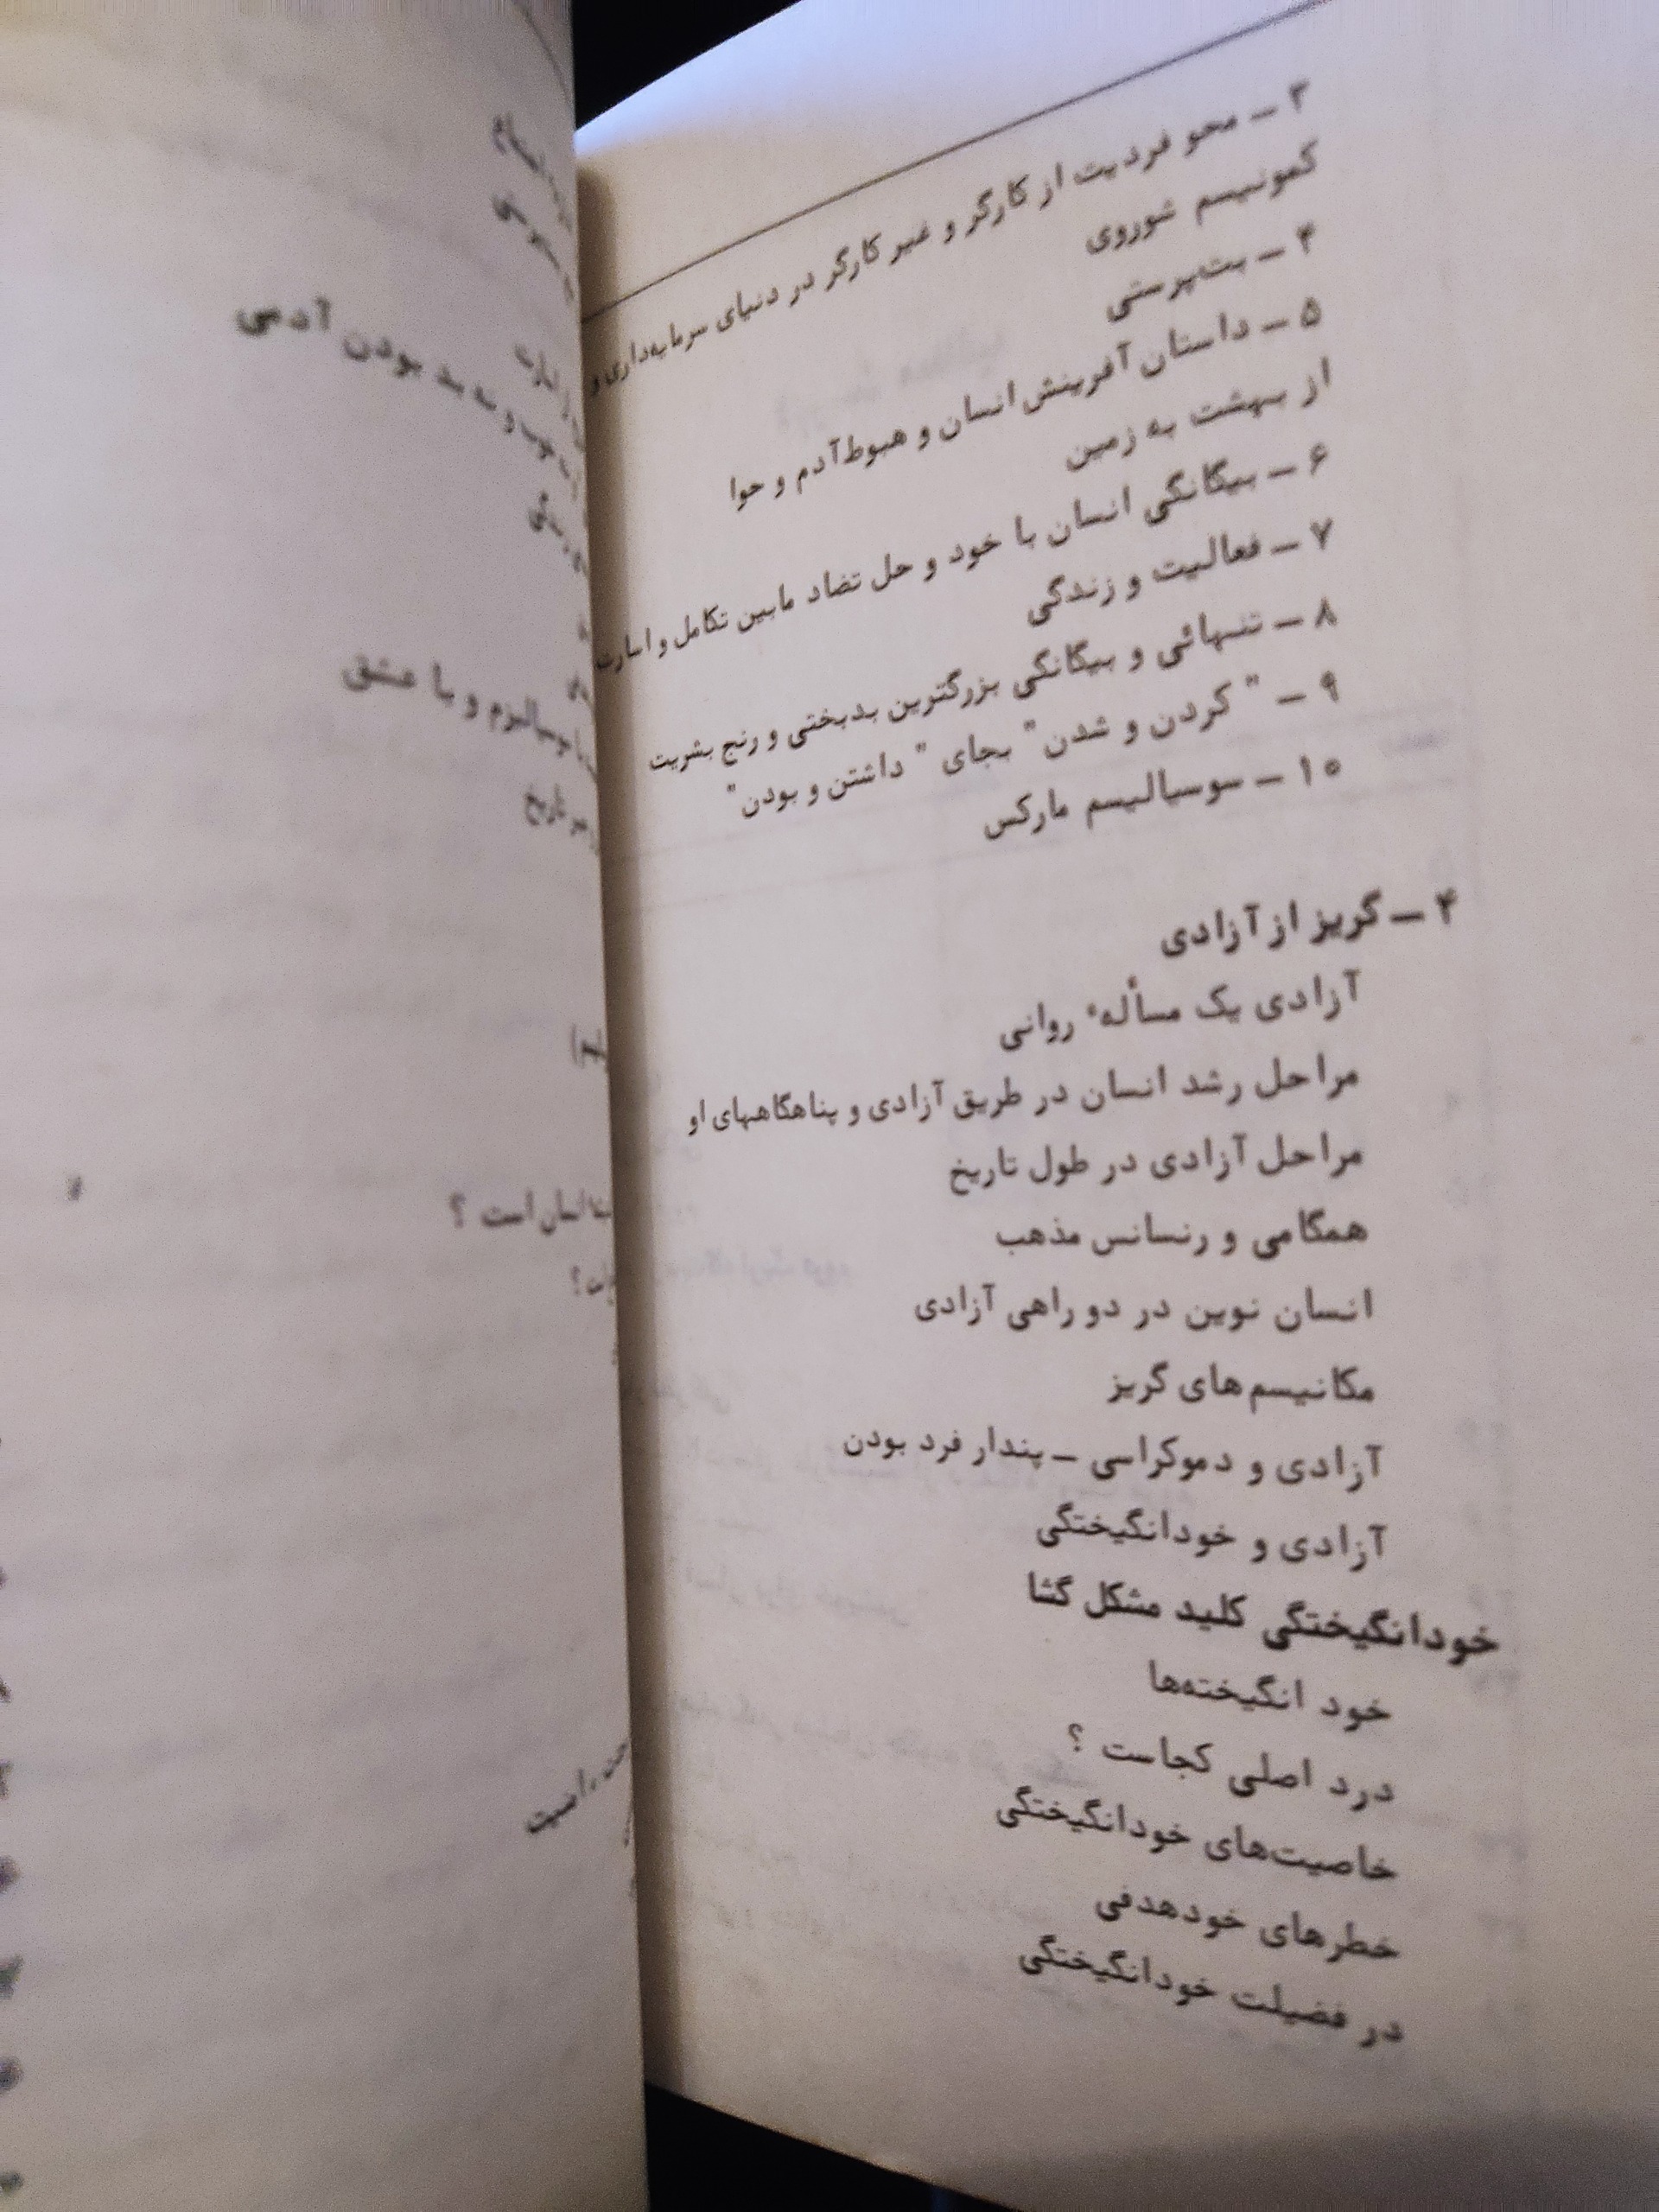 ۳ – محو فردیت از کارگر و غیر کارگر در دنیای سرمایه‌داری و
کمونیسم شوروی
۴ – بت‌پرستی
۵ – داستان آفرینش انسان و هبوط آدم و حوا
از بهشت به زمین
۶ – بیگانگی انسان با خود و حل تضاد مابین تکامل و اسارت
۷ – فعالیت و زندگی
۸ – تنهائی و بیگانگی بزرگترین بدبختی و رنج بشریت
۹ – " کردن و شدن " بجای " داشتن و بودن "
۱۰ – سوسیالیسم مارکس
۴ – گریز از آزادی
آزادی یک مسألهٔ روانی
مراحل رشد انسان در طریق آزادی و پناهگاههای او
مراحل آزادی در طول تاریخ
همگامی و رنسانس مذهب
انسان نوین در دو راهی آزادی
مکانیسم‌های گریز
آزادی و دموکراسی – پندار فرد بودن
آزادی و خودانگیختگی
خودانگیختگی کلید مشکل گشا
خود انگیخته‌ها
درد اصلی کجاست ؟
خاصیت‌های خودانگیختگی
خطرهای خودهدفی
در فضیلت خودانگیختگی
و نه بد بودن آدمی
و با عشق
تاریخ
انسان است ؟